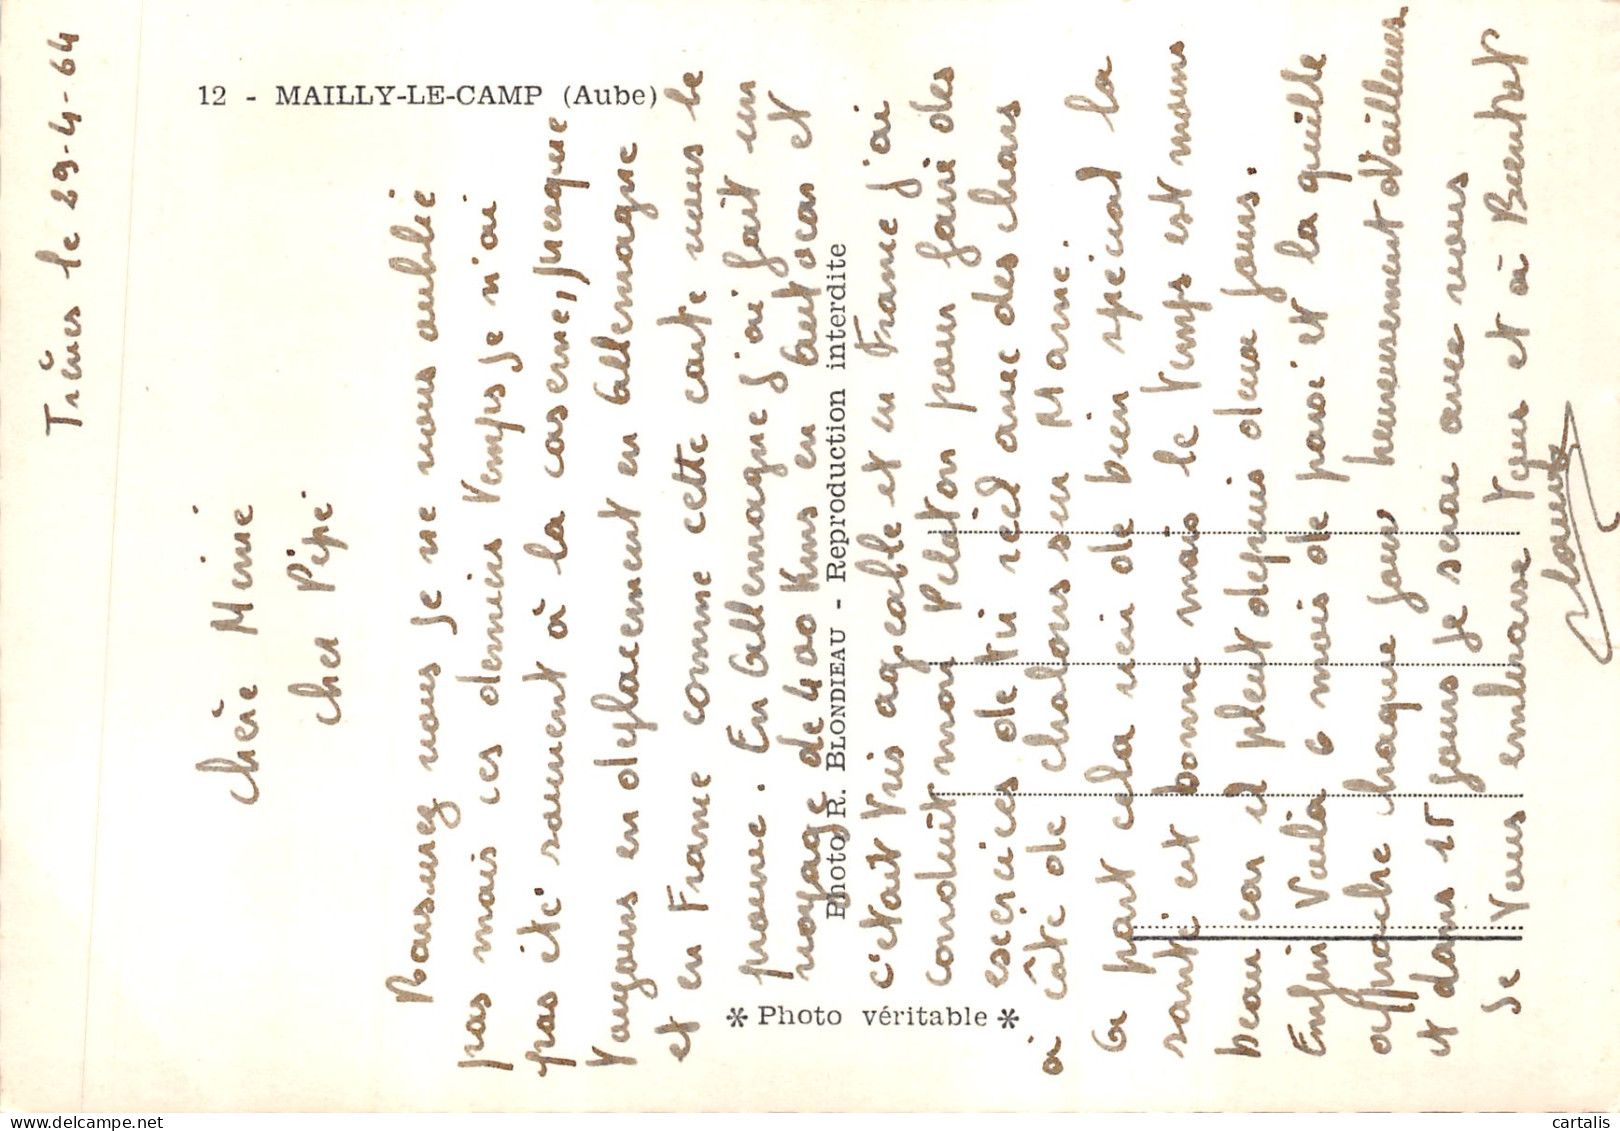 12 - MAILLY-LE-CAMP (Aube)
Photo R. BLONDIEAU - Reproduction interdite
* Photo véritable *
Trèves le 29-4-64
Chère Mémé
cher Pépé
Rassurez vous je ne vous oublie
pas mais ces derniers temps je n'ai
pas été souvent à la caserne, jusque
toujours en deplacement en Allemagne
et en France comme cette carte vous le
prouve. En Allemagne j'ai fait un
voyage de 400 kms en autocar et
c'etait tris agréable et en France j'ai
conduit mon Peloton pour faire des
exercices de tir réel avec des chars
à côté de chalons sur Marne.
A part cela rien de bien spécial la
santé est bonne mais le temps est moins
beau car il pleut depuis deux jours.
Enfin voilà 6 mois de passé et la quille
approche chaque jour heureusement d'ailleurs
et dans 15 jours je serai avec vous
Je vous embrasse tous et à Bientot